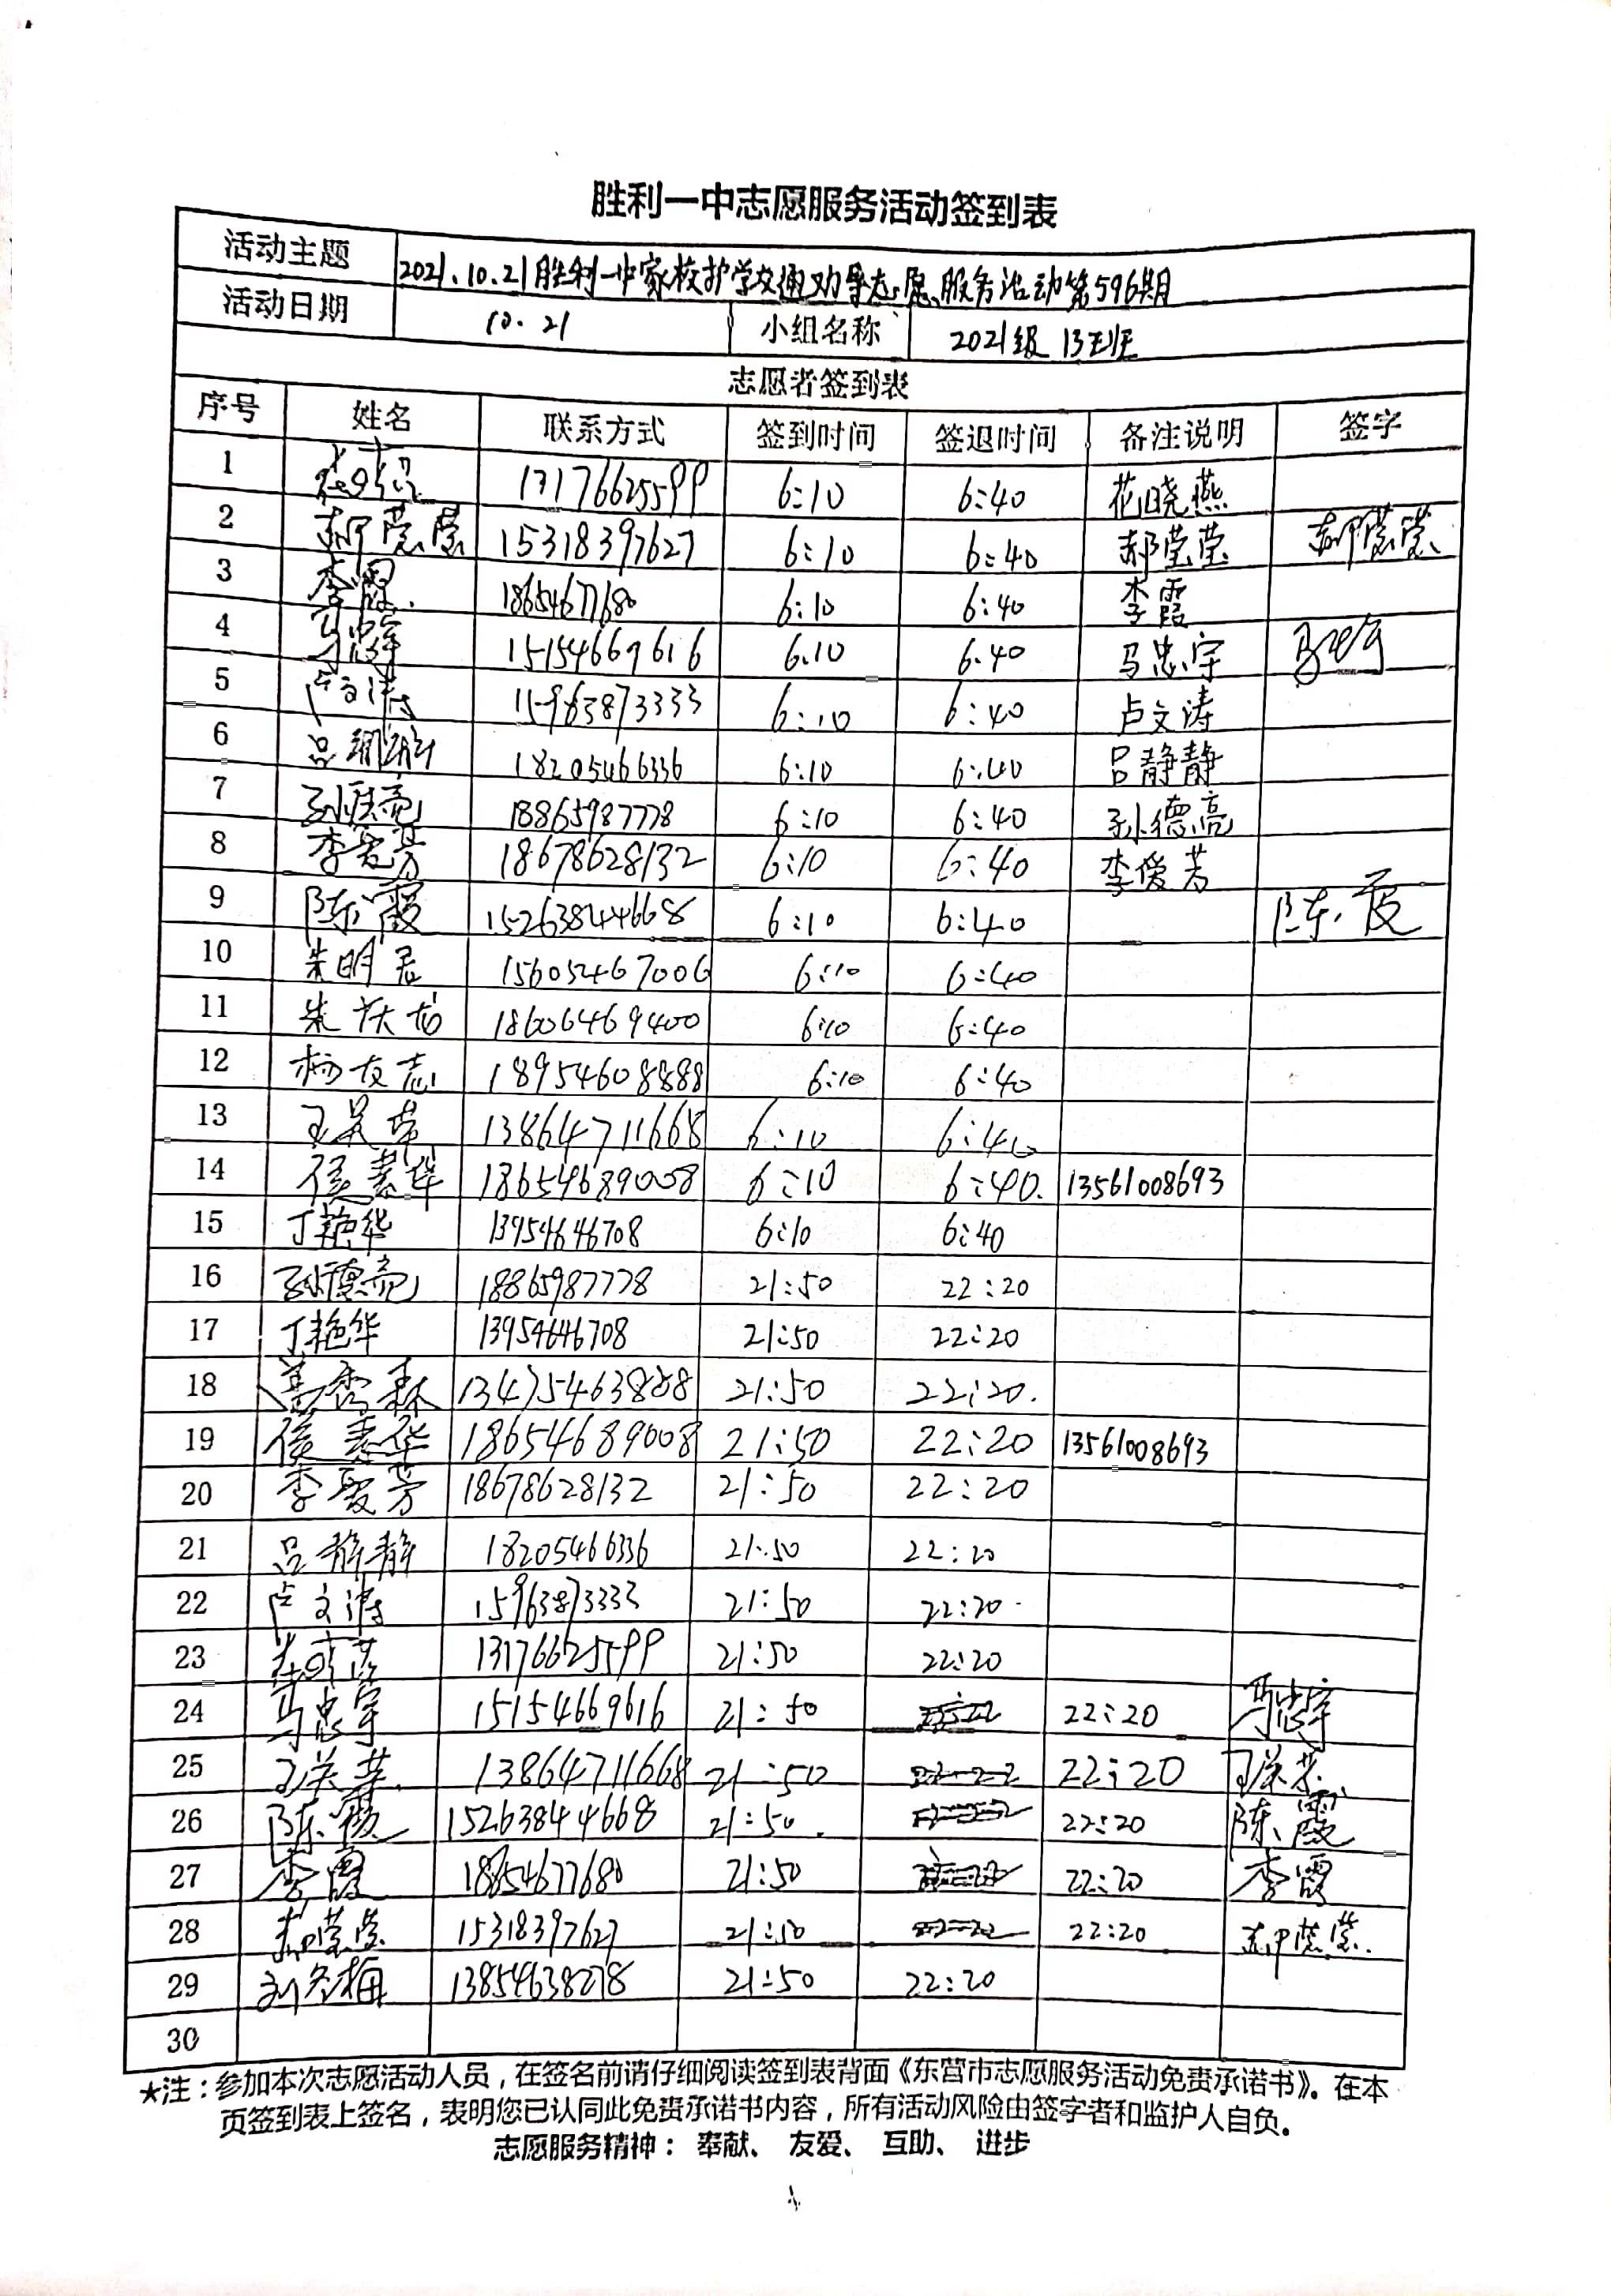 胜利一中志愿服务活动签到表
活动主题 2021.10.21胜利一中家校护学交通劝导志愿服务活动第596期
活动日期 10.21 小组名称 2021级 13班
志愿者签到表
序号 姓名 联系方式 签到时间 签退时间 备注说明 签字
1 花晓燕 13176625599 6:10 6:40 花晓燕
2 郝莹莹 15318397627 6:10 6:40 郝莹莹 郝莹莹
3 李霞 18654677680 6:10 6:40 李霞
4 马忠宇 15154669616 6:10 6:40 马忠宇 马忠宇
5 卢文涛 15963873333 6:10 6:40 卢文涛
6 吕静静 18205466336 6:10 6:40 吕静静
7 孙德亮 18865987778 6:10 6:40 孙德亮
8 李爱芳 18678628132 6:10 6:40 李爱芳
9 陈霞 15263844668 6:10 6:40 陈霞
10 朱明君 15605467006 6:10 6:40
11 18606469400 6:10 6:40
12 杨友志 18954608888 6:10 6:40
13 13864711668 6:10 6:40
14 侯素华 18654689008 6:10 6:40. 13561008693
15 丁艳华 13954646708 6:10 6:40
16 孙德亮 18865987778 21:50 22:20
17 丁艳华 13954646708 21:50 22:20
18 13475463888 21:50 22:20.
19 侯素华 18654689008 21:50 22:20 13561008693
20 李爱芳 18678628132 21:50 22:20
21 吕静静 18205466336 21:50 22:20
22 卢文涛 15963873333 21:50 22:20
23 花晓燕 13176625599 21:50 22:20
24 马忠宇 15154669616 21:50 22:20 马忠宇
25 13864711668 21:50 22:20
26 陈霞 15263844668 21:50 22:20 陈霞
27 李霞 18654677680 21:50 22:20 李霞
28 郝莹莹 15318397627 21:50 22:20 郝莹莹
29 刘冬梅 13854638278 21:50 22:20
30
★注：参加本次志愿活动人员，在签名前请仔细阅读签到表背面《东营市志愿服务活动免责承诺书》。在本
页签到表上签名，表明您已认同此免责承诺书内容，所有活动风险由签字者和监护人自负。
志愿服务精神： 奉献、 友爱、 互助、 进步